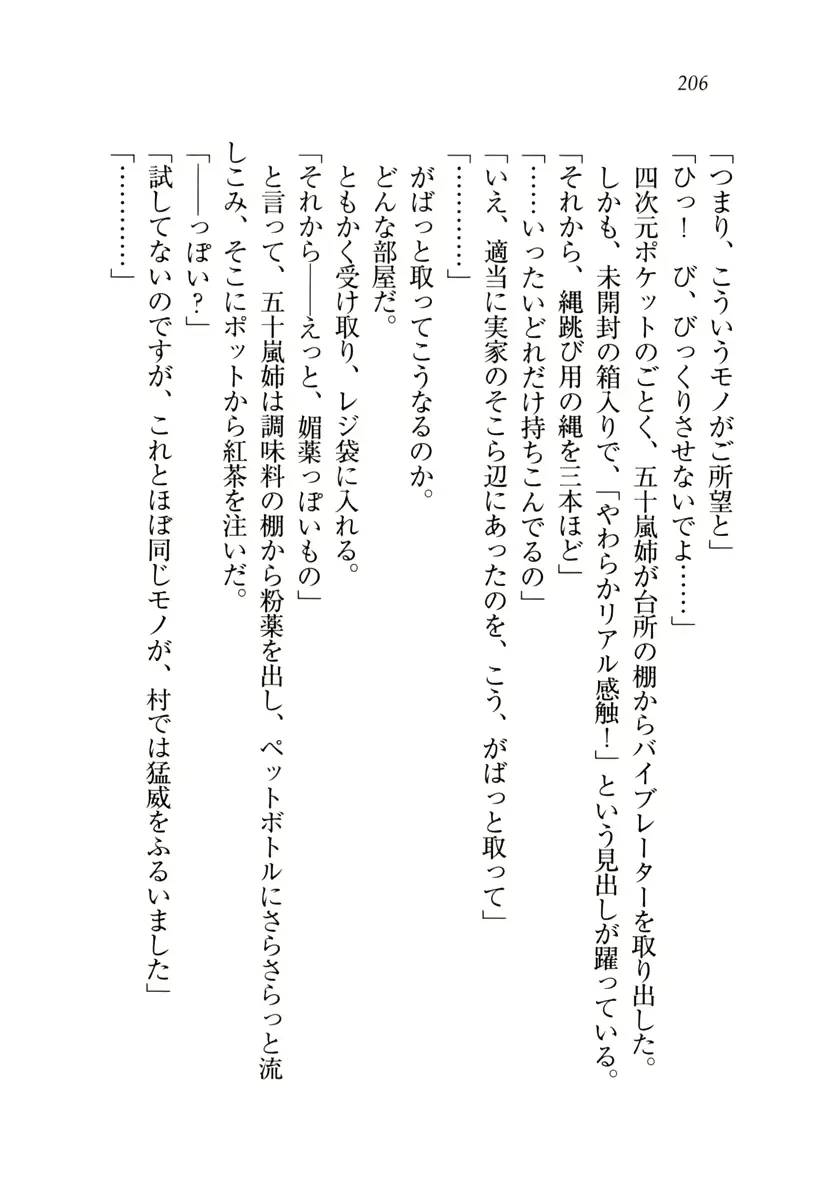 206
「つまり、こういうモノがご所望と」
「ひっ！　び、びっくりさせないでよ……」
　四次元ポケットのごとく、五十嵐姉が台所の棚からバイブレーターを取り出した。
　しかも、未開封の箱入りで、「やわらかリアル感触！」という見出しが躍っている。
「それから、縄跳び用の縄を三本ほど」
「……いったいどれだけ持ちこんでるの」
「いえ、適当に実家のそこら辺にあったのを、こう、がばっと取って」
「…………」
　がばっと取ってこうなるのか。
　どんな部屋だ。
　ともかく受け取り、レジ袋に入れる。
「それから――えっと、媚薬っぽいもの」
　と言って、五十嵐姉は調味料の棚から粉薬を出し、ペットボトルにさらさらっと流
しこみ、そこにポットから紅茶を注いだ。
「――っぽい？」
「試してないのですが、これとほぼ同じモノが、村では猛威をふるいました」
「…………」